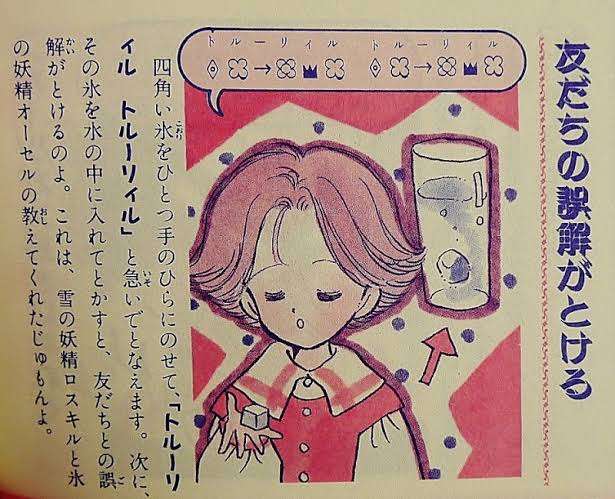 友だちの誤解がとける
トルーリィル　トルーリィル
四角い氷をひとつ手のひらにのせて、「トルーリ
ィル　トルーリィル」と急いでとなえます。次に、
その氷を水の中に入れてとかすと、友だちとの誤
解がとけるのよ。これは、雪の妖精ロスキルと氷
の妖精オーセルの教えてくれたじゅもんよ。